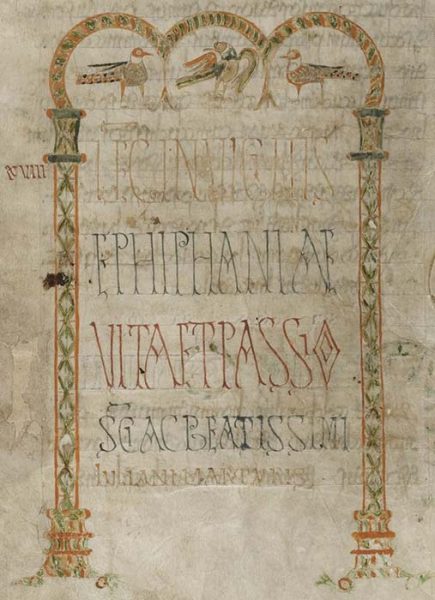 LEG IN VIGILIIS
EPHIPHANIAE
VITA ET PASSIO
SCI AC BEATISSIMI
IULIANI MARTYRIS